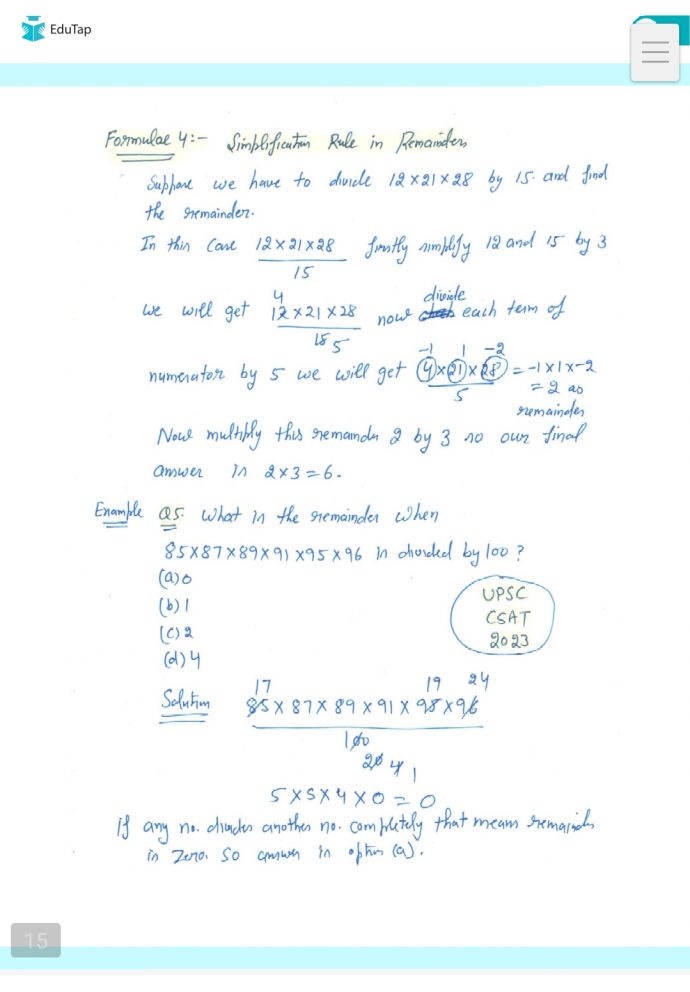 EduTap
Formulae 4:- Simplification Rule in Remainders
Suppose we have to divide 12×21×28 by 15. and find
the remainder.
In this case 12×21×28 firstly simplify 12 and 15 by 3
15
4 divide
we will get 12×21×28 now each term of
15 5
-1 1 -2
numerator by 5 we will get 4×21×28 = -1×1×-2
5 = 2 as
remainder
Now multiply this remainder 2 by 3 so our final
answer is 2×3=6.
Example Q5. What is the remainder when
85×87×89×91×95×96 is divided by 100?
(a) 0
(b) 1
(c) 2
(d) 4
UPSC
CSAT
2023
17 19 24
Solution 85×87×89×91×95×96
100
20 4 1
5×5×4×0=0
If any no. divides another no. completely that means remainder
is zero. So answer is option (a).
15